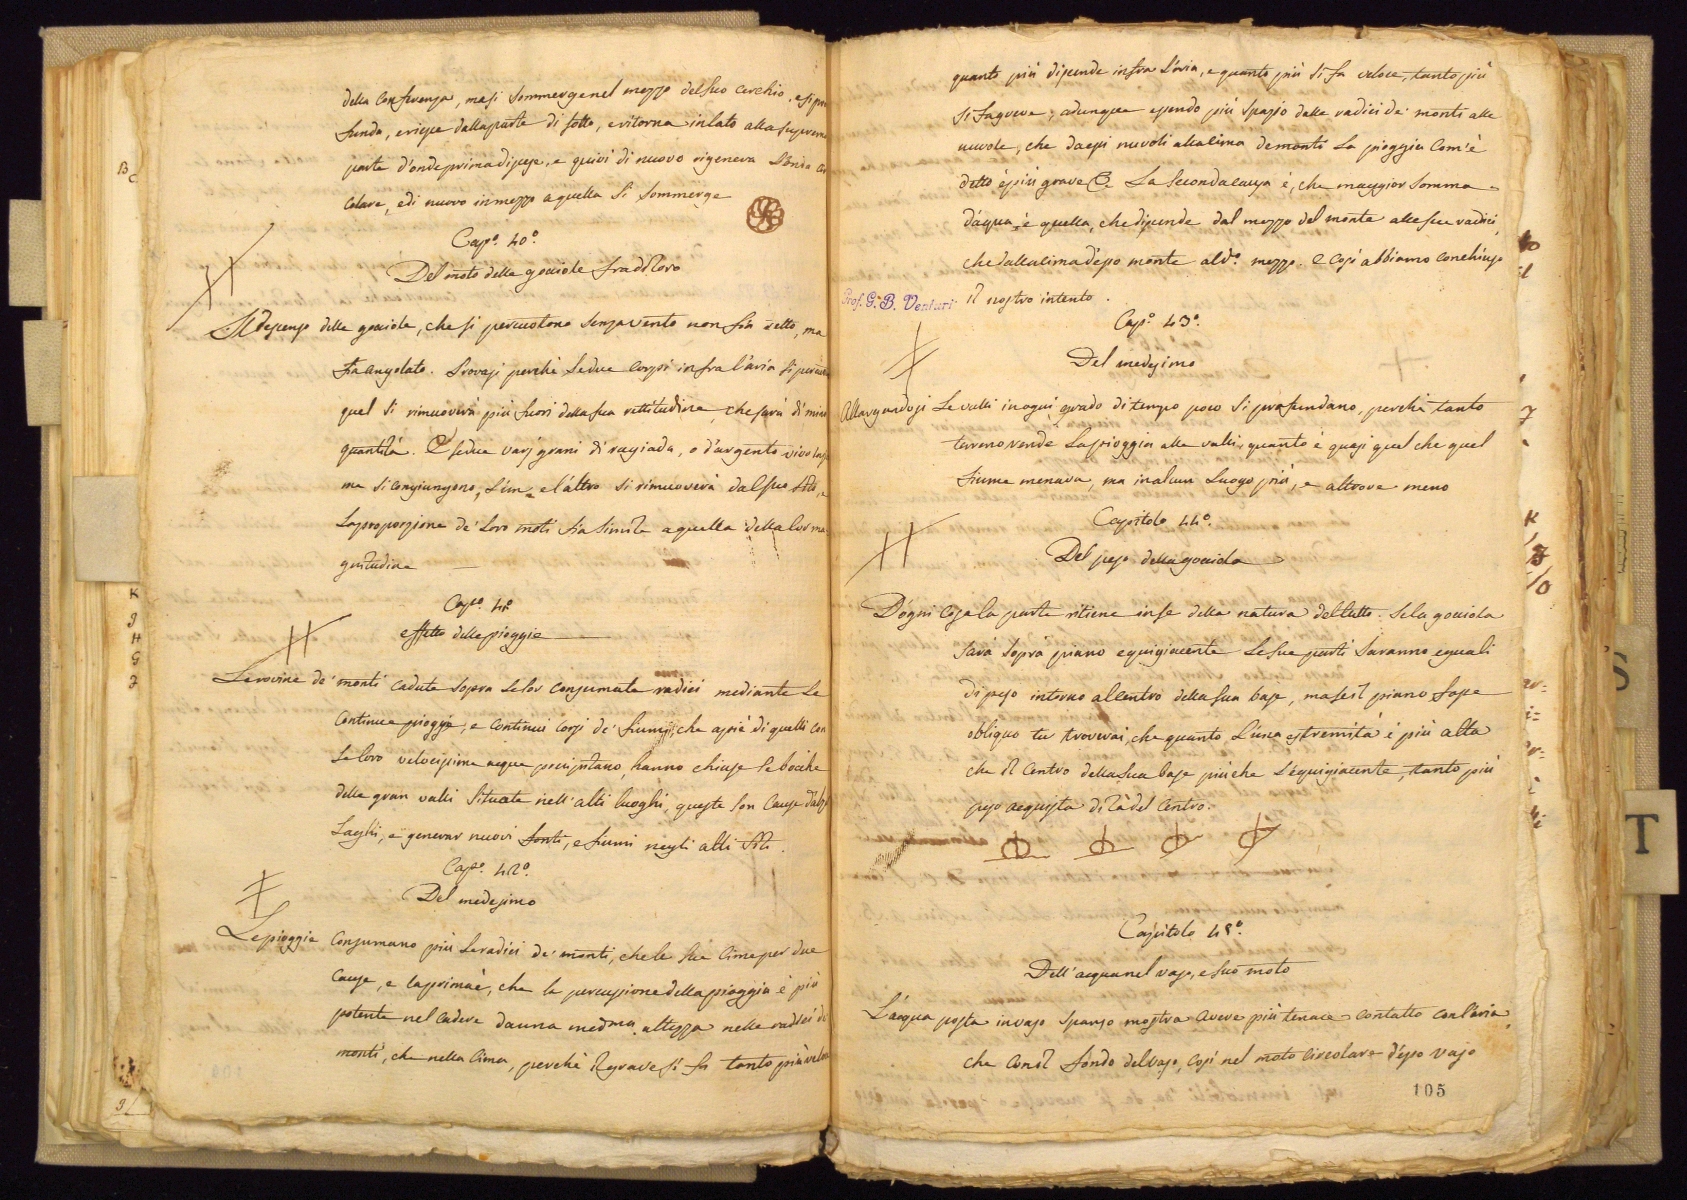 della Confrenza, ma si sommerge nel mezzo del suo cerchio, e si pro
funda, e riesce dalla parte di sotto, e ritorna in lato alla superna
parte d'onde prima discese, e quivi di nuovo rigenera l'onda cir
colare, e di nuovo in mezzo a quella si sommerge
Cap.º 40º.
Del moto delle gocciole fra di loro
Il descenso delle gocciole, che si percuotono senza vento non fia retto, ma
fia angolato. Provasi perchè se due corpi infra l'aria si percuo
quel si rimuoverà più fuori della sua rettitudine, che sarà di mino
quantità. E se due varj grani di rugiada, o d'argento vivo insie
me si congiungono, l'un, e l'altro si rimuoverà dal suo sito, e
la proporzione de' loro moti fia simile a quella della lor ma
gnitudine
Capº. 41º
effetto delle piogge
Le rovine de' monti cadute sopra le lor consumate radici mediante le
continue piogge, e continui corsi de' fiumi, che a piè di quelli con
le loro velocissime acque precipitano, hanno chiuse le bocche
delle gran valli situate nell' alti luoghi, queste son cause d'alzar
laghi, e generar nuovi fonti, e fiumi negli alti siti.
Capº. 42º.
Del medesimo
Le pioggie consumano più le radici de' monti, che le sue cime per due
cause, e la prima è, che la percussione della pioggia è più
potente nel cadere da una med.ma altezza nelle radici de'
monti, che nella cima, perchè il grave si fa tanto più veloce
quanto più discende infra l'aria, e quanto più si fa veloce, tanto più
si fa greve; adunque essendo più spazio dalle radici de' monti alle
nuvole, che da essi nuvoli alla cima de monti la pioggia com'è
detto è più grave B. La seconda causa è, che maggior somma
d'acqua è quella, che discende dal mezzo del monte alle sue radici,
che dalla cima d'esso monte al d.º mezzo. e così abbiamo conchiuso
il nostro intento.
Prof. G. B. Venturi
Capº. 43º.
Del medesimo
Allargandosi le valli in ogni grado di tempo poco si profundano, perchè tanto
terreno rende la pioggia alle valli, quanto è quasi quel che quel
fiume menava, ma in alcun luogo più, e altrove meno
Capitolo 44º.
Del peso della gocciola
D'ogni cosa la parte ritiene in se della natura del tutto. Se la gocciola
sarà sopra piano equigiacente le sue parti saranno eguali
di peso intorno al centro della sua base, ma se il piano fosse
obliquo tu troverai, che quanto l'una estremità è più alta
che il centro della sua base più che l'equigiacente, tanto più
peso acquista di là del centro.
Capitolo 45º.
Dell' acqua nel vaso, e suo moto
L'acqua posta in vaso spanso mostra avere più tenace contatto con l'aria,
che con il fondo del vaso, così nel moto circolare d'esso vaso
105
T